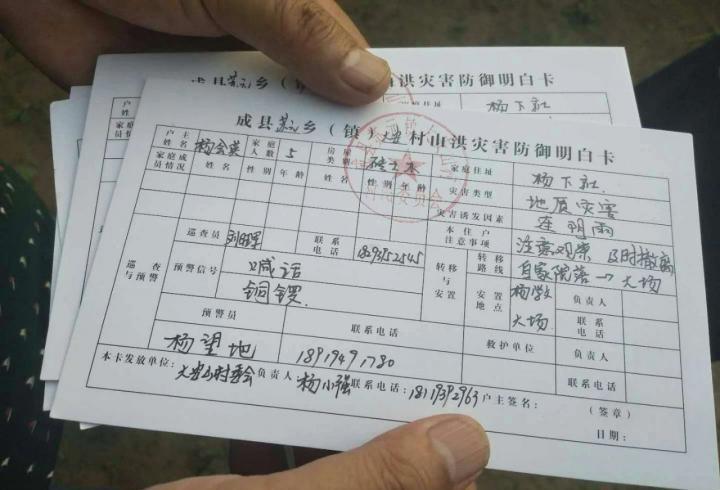 县苏元乡(镇 山洪灾害防御明白卡
家庭住址 杨下社
成县苏元乡(镇)大安村山洪灾害防御明白卡
户主姓名 杨会英 家庭人数 5 房屋类别 砖土木 家庭住址 杨下社
家庭成员情况 姓名 性别 年龄 姓名 性别 年龄 灾害类型 地质灾害
灾害诱发因素 连阴雨
本住户注意事项 注意观察 及时撤离
巡查与预警 巡查员 联系电话 1809352545 转移与安置 转移路线 自家院落→大场
预警信号 喊话 铜锣 安置地点 大场 负责人
联系电话
预警员 联系电话 救护单位 负责人
杨望地 18919491780 联系电话
本卡发放单位:大安村委会 负责人:杨小强 联系电话:18119392963 户主签名: (签章)
日期: